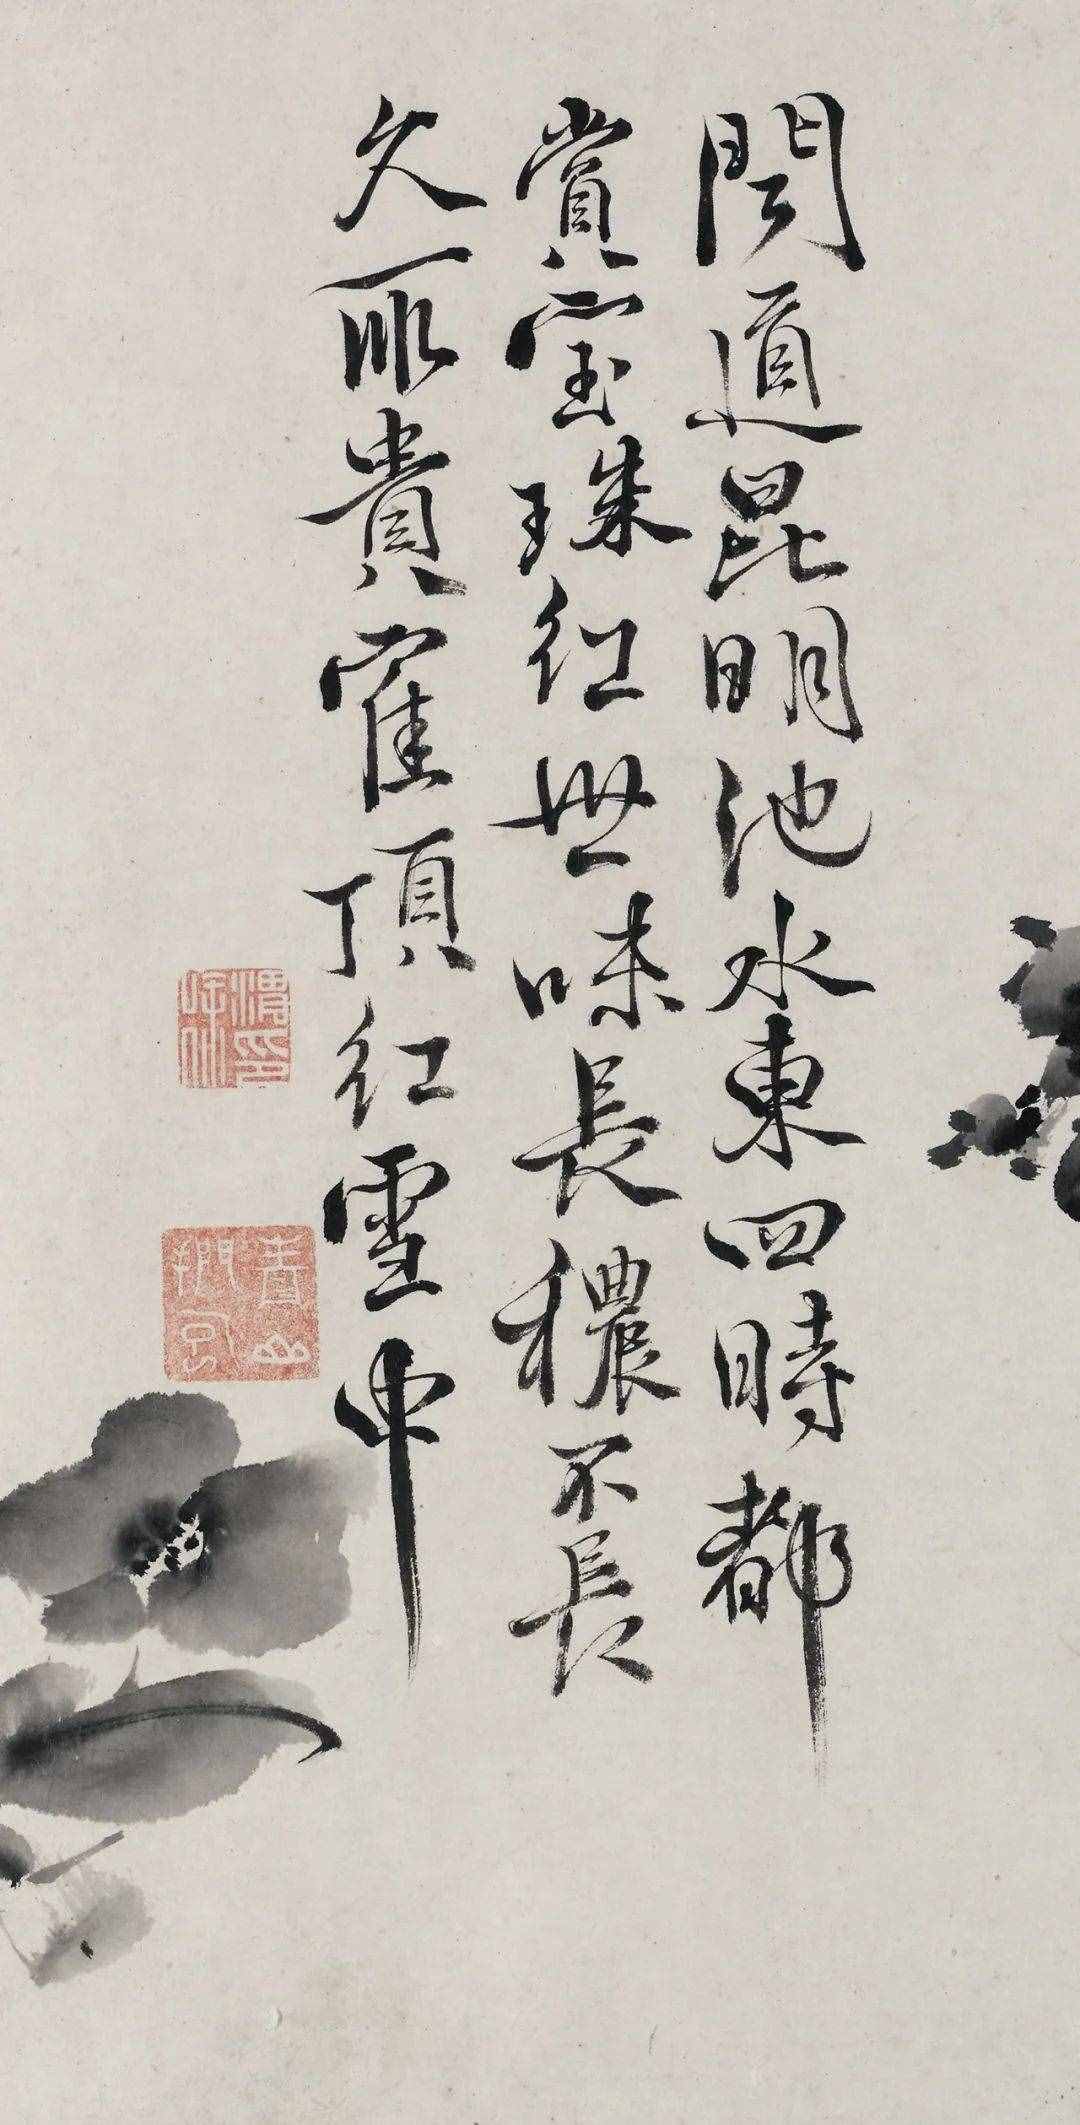 聞道昆明池水東四時都
賞宝珠红世味長穠不長
久所貴寉頂红雪中
青山捫虱